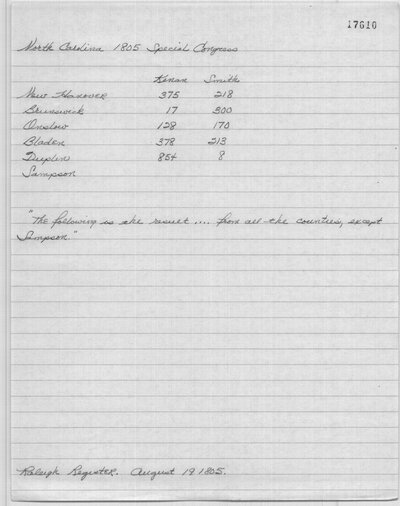 17610
North Carolina 1805 Special Congress
Kenan Smith
New Hanover 375 218
Brunswick 17 300
Onslow 128 170
Bladen 378 213
Duplin 854 8
Sampson
"The following is the result .... from all the counties, except
Sampson."
Raleigh Register. August 19 1805.